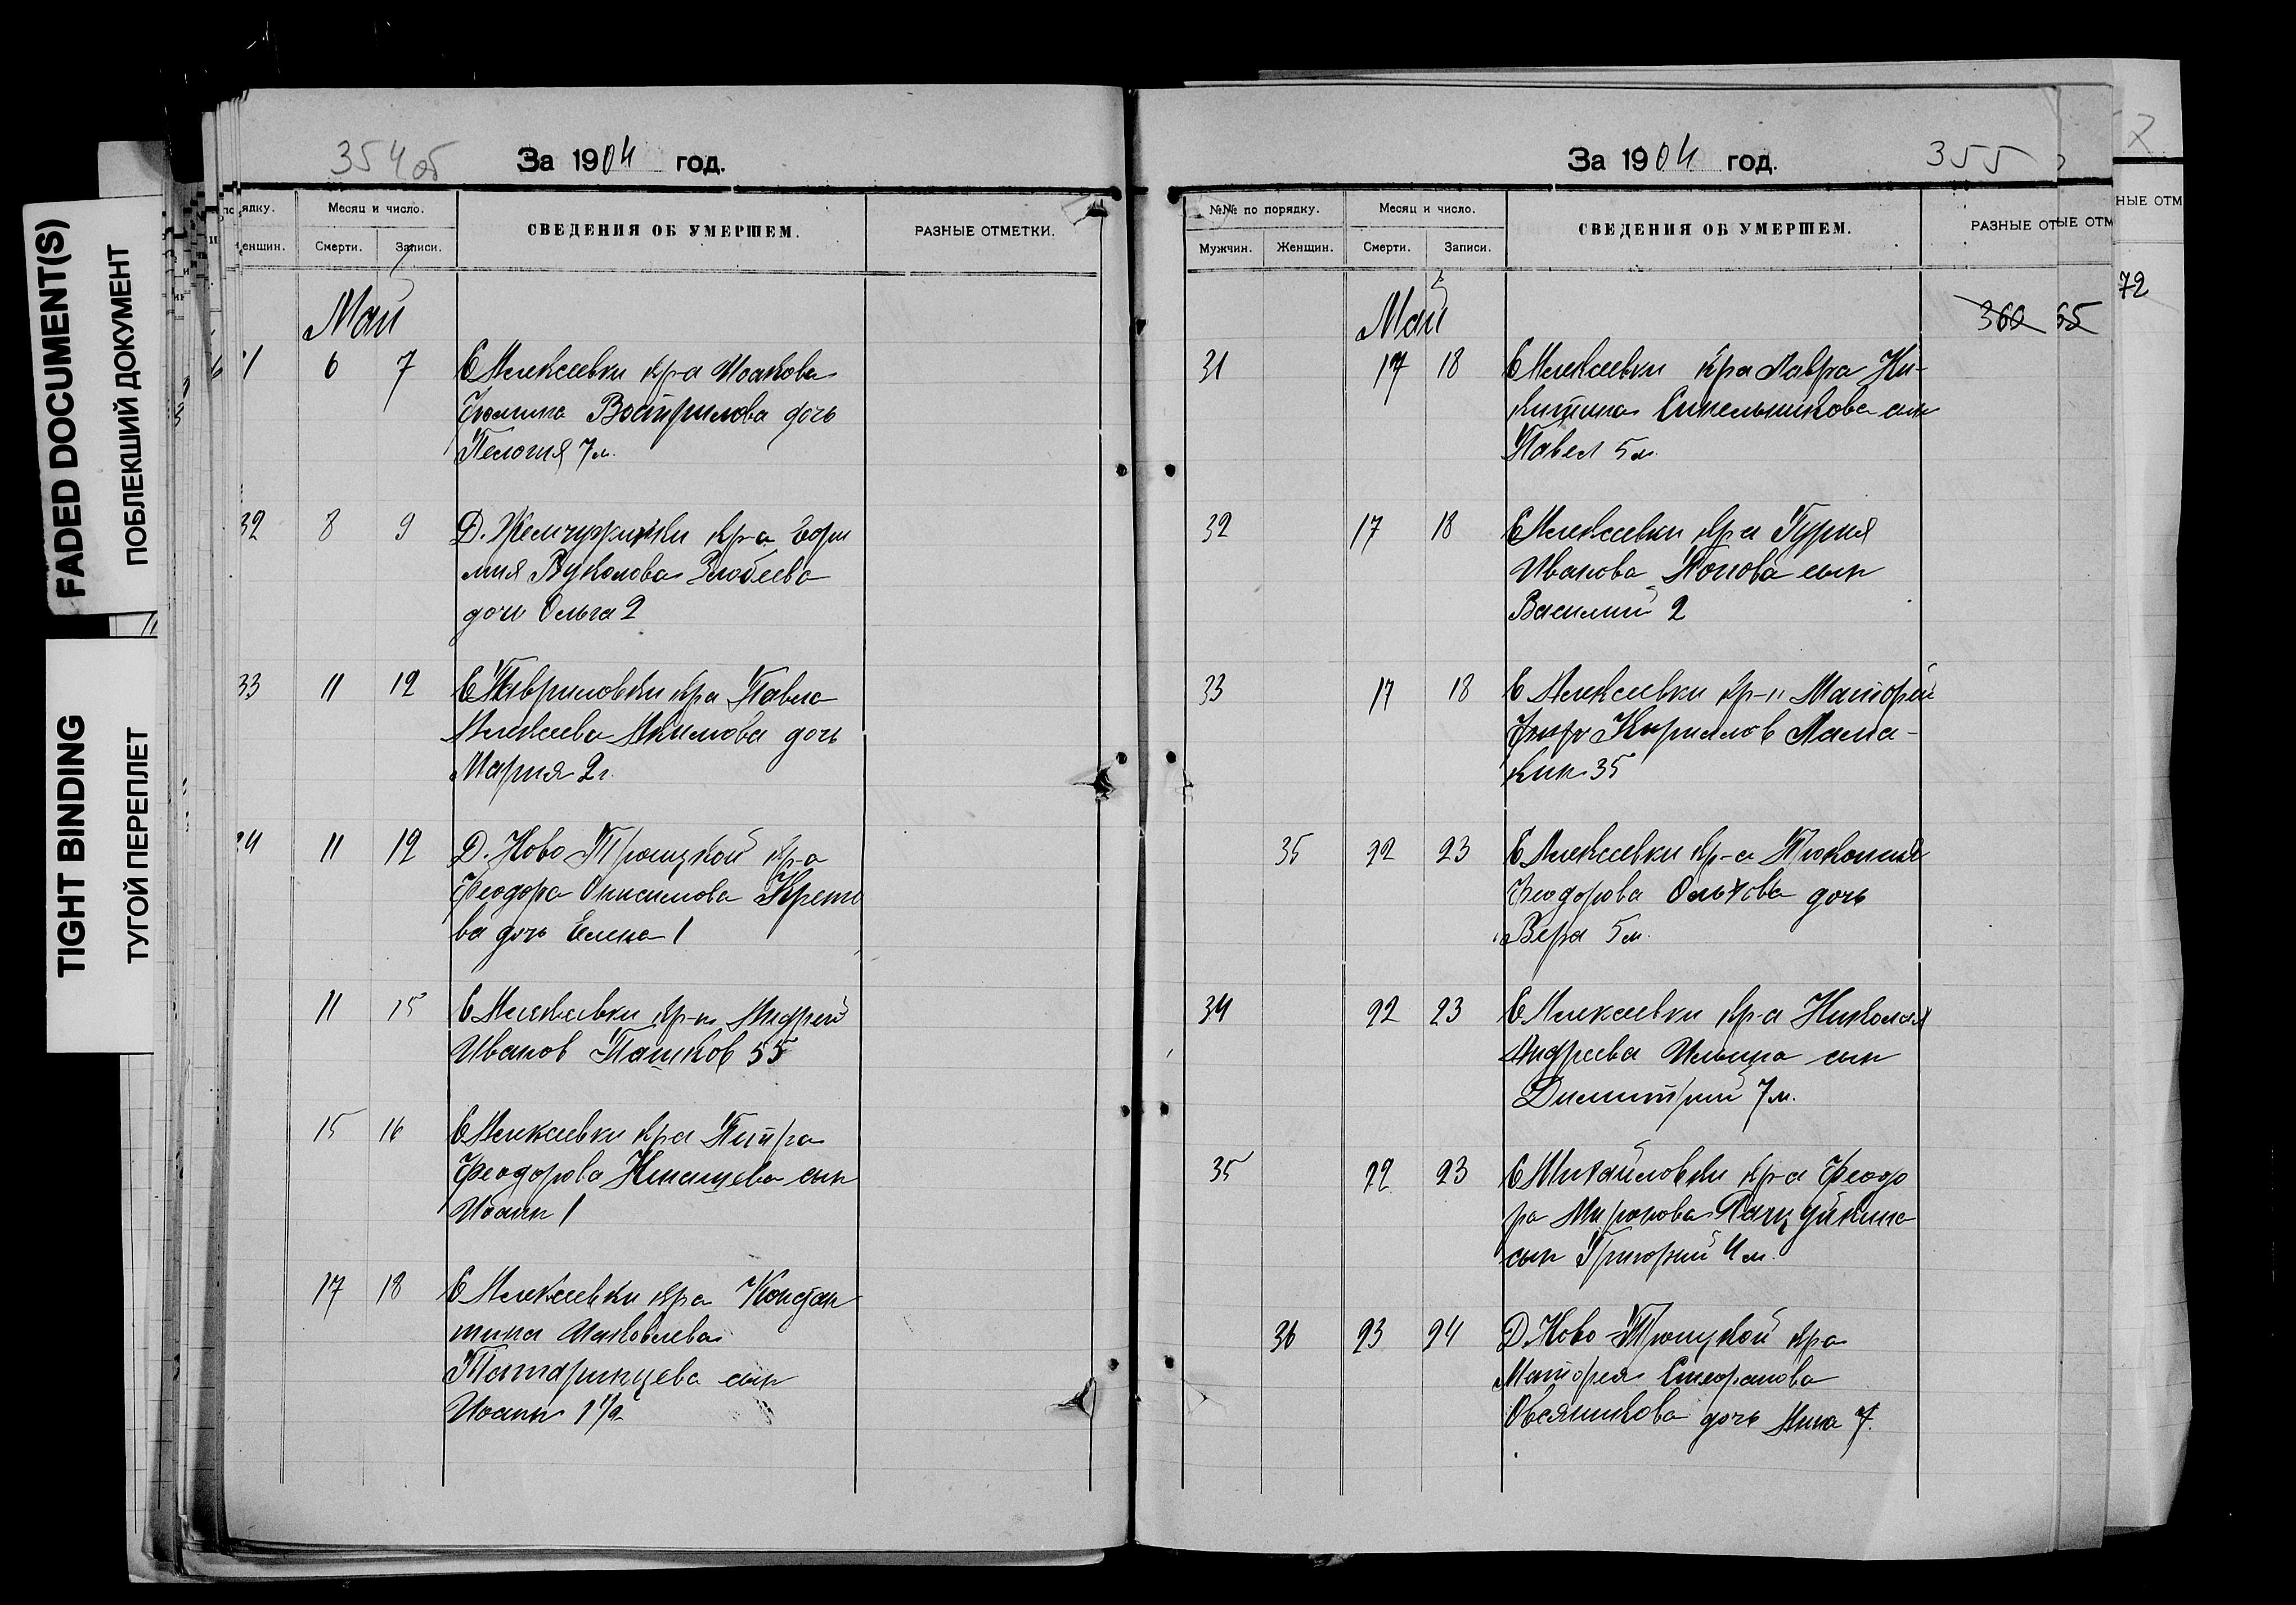 FADED DOCUMENT(S)
ПОБЛЕКШИЙ ДОКУМЕНТ
TIGHT BINDING
ТУГОЙ ПЕРЕПЛЕТ
354об
За 1904 год.
Месяц и число.
Смерти. Записи.
СВЕДЕНИЯ ОБ УМЕРШЕМ.
РАЗНЫЕ ОТМЕТКИ.
Май
6 7 С Алексеевки кр-а Иоакова
Вострилова дочь
Пелогия 7 м.
32 8 9 Д. Жемчужинки кр-а
Вуколова Злобеева
дочь Ольга 2
33 11 12 С Гавриловки кр-а Павла
Алексеева Акимова дочь
Мария 2 г.
11 12 Д. Ново Троицкой кр-а
Феодора Онисимова Крето
ва дочь Елена 1
11 15 С Алексеевки кр-н Андрей
Иванов Пашков 55
15 16 С Алексеевки кр-а Петра
Феодорова сын
Иоанн 1
17 18 С Алексеевки кр-а Констан
тина Иаковлева
Татаринцева сын
Иоанн 1 1/2
За 1904 год.
355
№№ по порядку.
Месяц и число.
Мужчин. Женщин. Смерти. Записи.
СВЕДЕНИЯ ОБ УМЕРШЕМ.
РАЗНЫЕ ОТ
ЫЕ ОТМ
НЫЕ ОТМ
72
360 65
Май
31 17 18 С Алексеевки кр-а Лавра Ни-
китина Синельникова сын
Павел 5 м.
32 17 18 С Алексеевки кр-а Гурия
Иванова Попова сын
Василий 2
33 17 18 С Алексеевки кр-н Матфей
Кириллов Лама-
кин 35
35 22 23 С Алексеевки кр-а Прокопия
Феодорова Ольхова дочь
Вера 5 м.
34 22 23 С Алексеевки кр-а Николая
Андреева Ильина сын
Димитрий 7 м.
35 22 23 С Михайловки кр-а Феодо
ра Миронова
сын Григорий 4 м.
36 23 24 Д. Ново-Троицкой кр-а
Матфея Стефанова
Овсяникова дочь Анна 7.